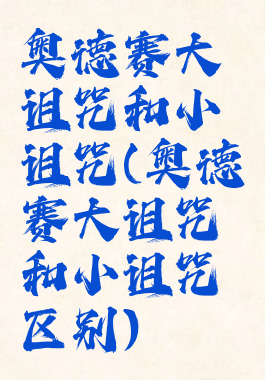 奥德赛大
诅咒和小
诅咒(奥德
赛大诅咒
和小诅咒
区别)